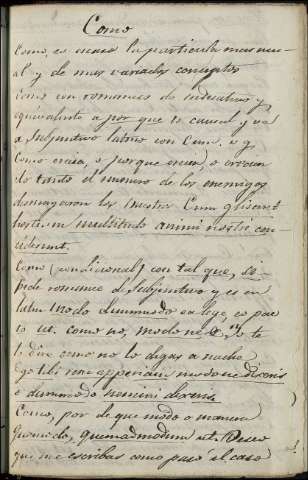 Como
Como, es acaso la particula mas usu-
al y de mas variados conceptos
Como con romances de indicativo, y
equivalente a por que es causal y va
a subjuntivo latino con Cum. v. g.
Como creia, o porque creian, o creian
do tanto el numero de los enemigos
desmayaron los nuestros Cum cresceret
hostium multitudo animi nostri con-
ciderunt.
Como (condicional) con tal que, si
pide romance de subjuntivo y es en
latin Modo dummodo ea lege, eo pac
to ut. Como no, modo ne v. g. te
lo dire como no lo digas a nadie
Ego tibi rem aperiam modo ne dixeris
o dummodo nemini dixeris
Como, por de que modo o manera
Quomodo, quemadmodum ut. Deseo
que me escribas como pasó el caso